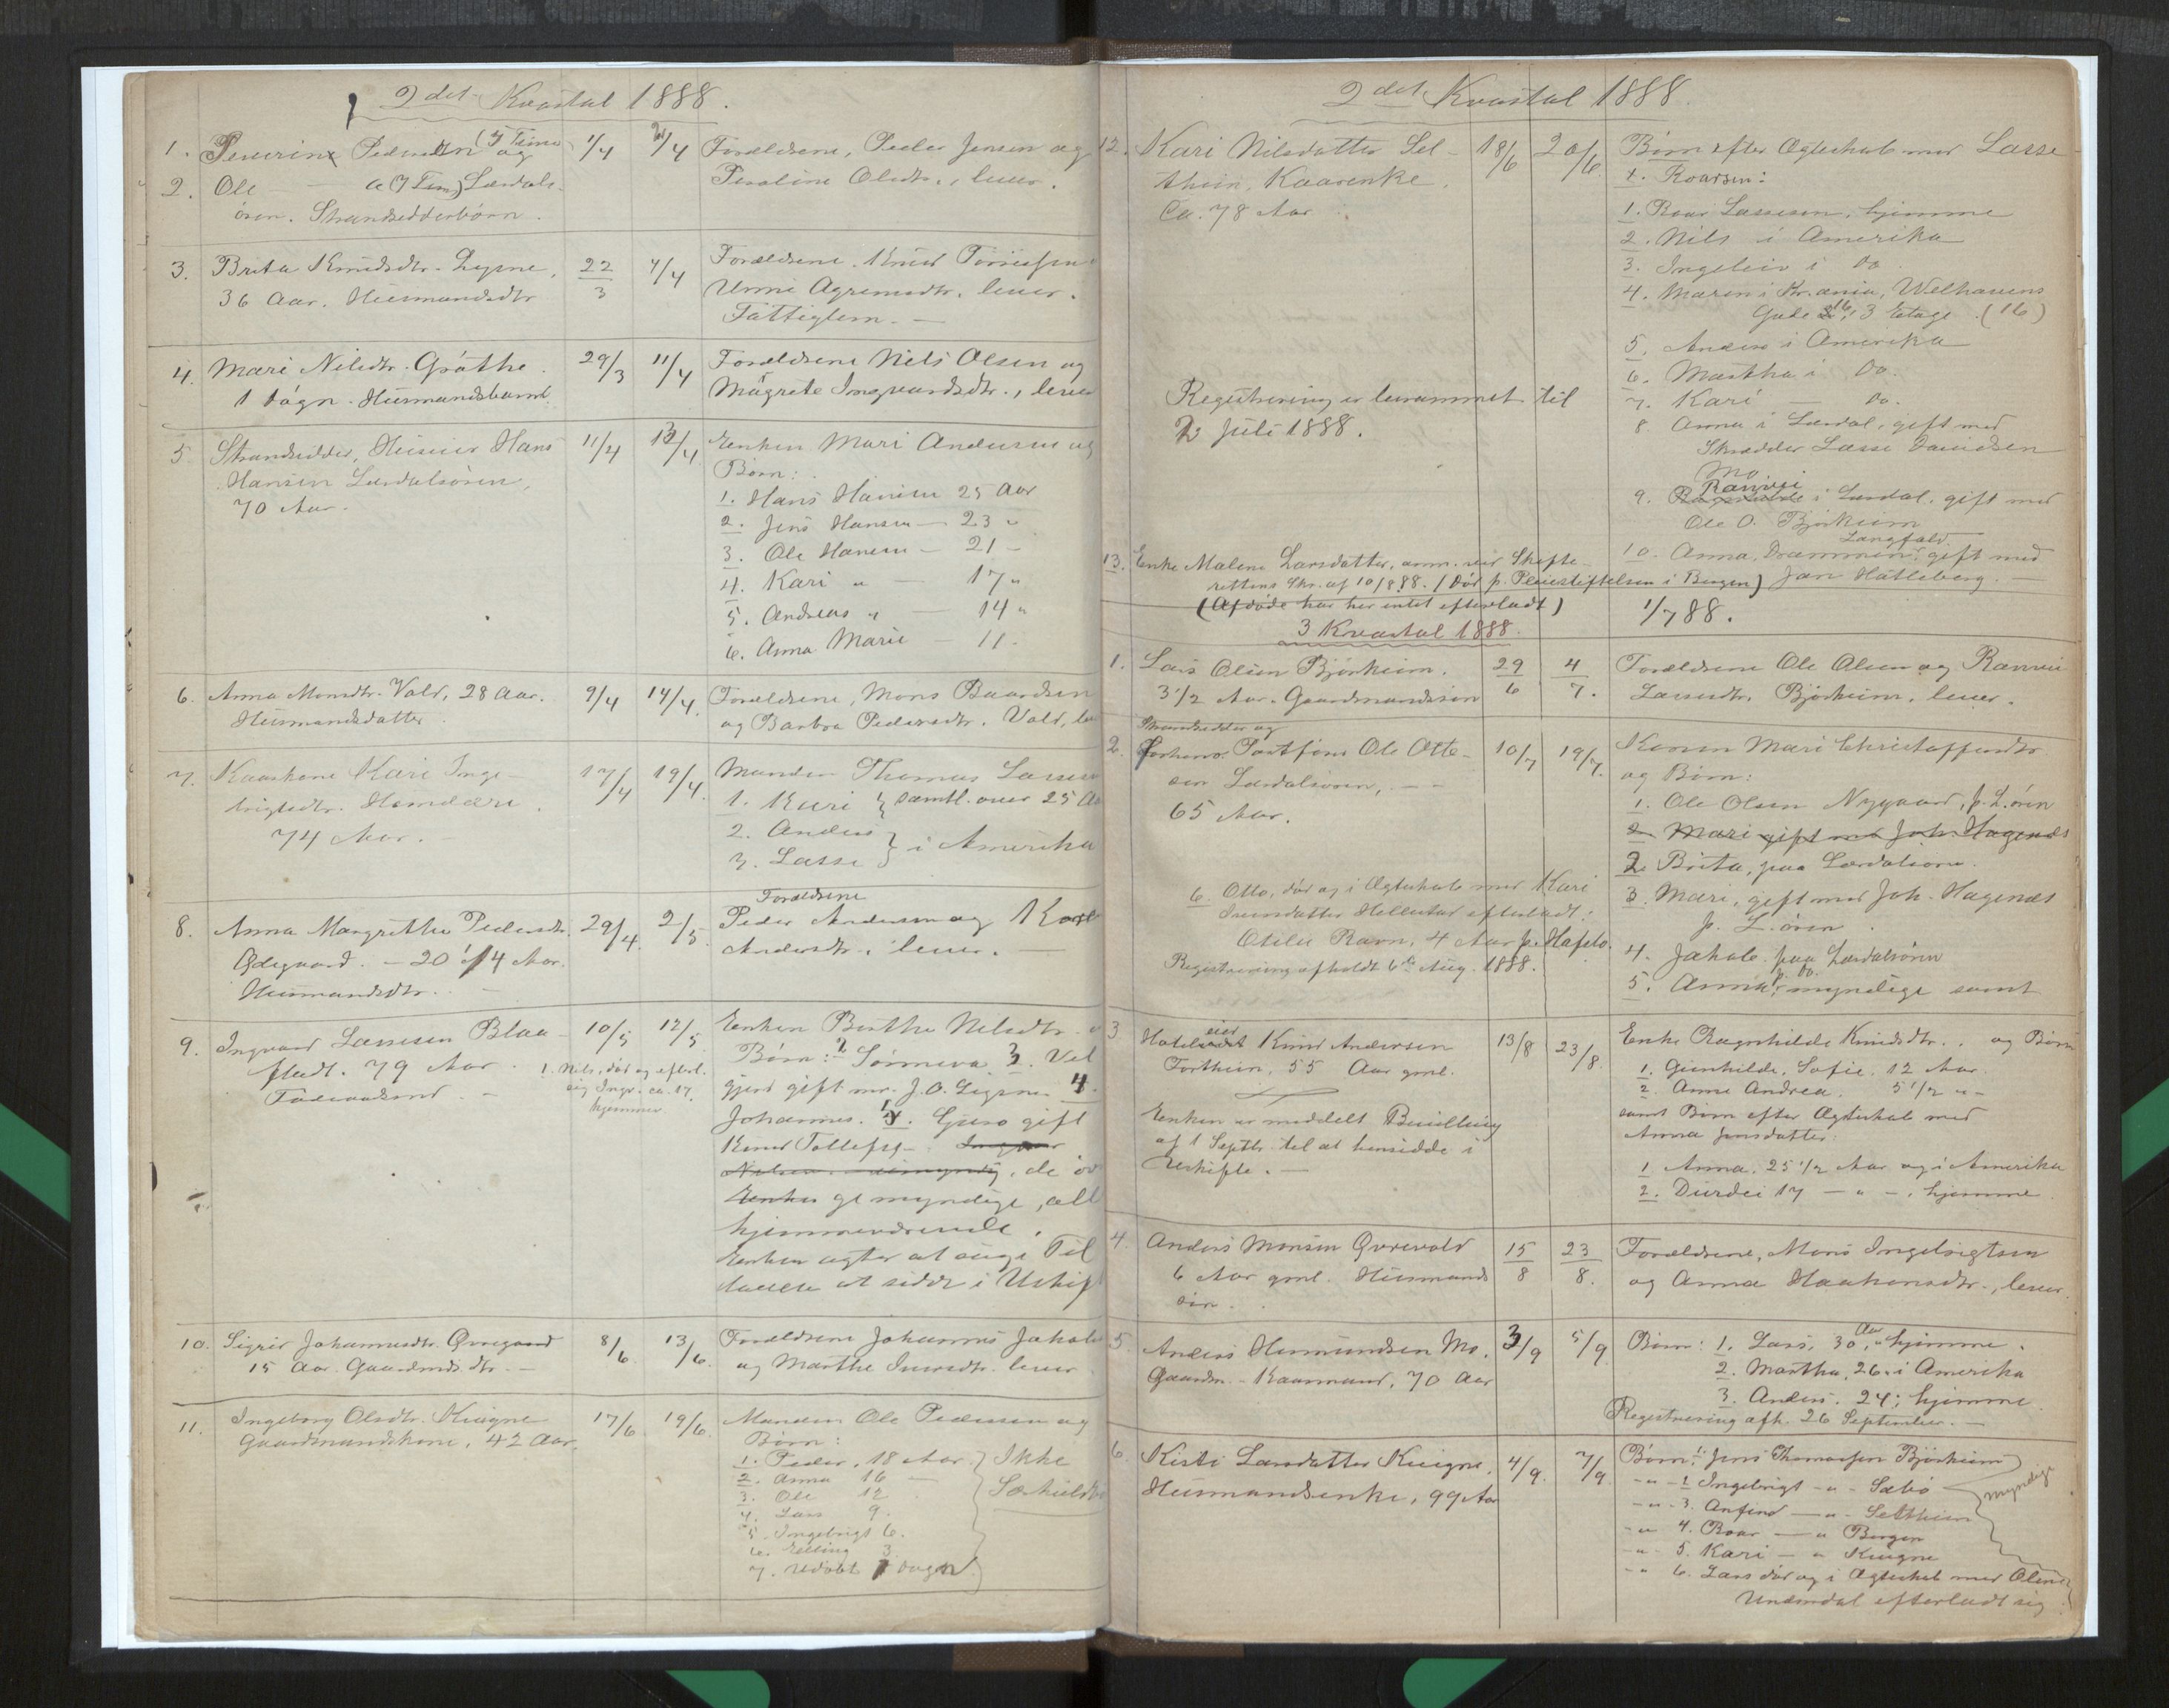 2det Kvartal 1888.
1. Pedersen (7 Timer) og 1/4 2/4 Forældrene, Peder Jensen og
2. Ole — (7 Tim) Lærdals- Oldtr., lever.
øren. Strandsidderbørn.
3. Brita Knudsdtr. Lysne, 22/3 4/4 Forældrene, Knud
36 Aar. Husmandsdtr Unni lever.
Fattiglem. —
4. Mari Nilsdtr. Grøthe 29/3 11/4 Forældrene Nils Olsen og
1 Døgn. Husmandsbarn. Magrete Ingvardsdtr., lever
5 Strandsidder, Hans 11/4 12/4 Enken Mari Andersen og
Hansen Lærdalsøren, Børn:
70 Aar. 1. Hans Hansen 25 Aar
2. Jens Hansen — 23 "
3. Ole Hansen — 21 —
4. Kari " — 17 "
5. Andreas " — 14 "
6. Anna Marie — 11 -
6. Anna Monsdtr. Vold, 28 Aar. 9/4 14/4. Forældrene, Mons Baardsen
Husmandsdatter. og Barbra Pedersdtr. Vold, le
7. Kaarkone Kari Inge- 17/4 19/4. Manden Thomas Lassen
brigtsdtr. 1. Kari } samtl. over 25 Aa
74 Aar. — 2. Anders
3. Lasse } i Amerika
Forældrene
8. Anna Margrethe Pedersdtr. 29/4. 2/5. Peder Andersen og Kari
Ødegaard. — 20 1/4 Aar. Andersdtr., lever. —
Husmandsdtr. —
9. Ingvard Lassesen Blaa- 10/5 12/5 Enken Berthe Nilsdtr. o
fladt. 79 Aar. 1. Nils, død og efterl. Børn: 2 Synneva. 3. Vel
Føderaadsmd. — sig Ingv. ca. 17. gjerd gift m. J. O. Ligene 4.
hjemme. Johannes. 5. Guro gift
Knud Tollefs. — Ingvar
Nilsen umyndig, de øv
Enken ge myndige, alle
hjemmeværende.
Enken agter at søge Til
ladelse at sidde i Uskift
10. Sigrid Johannesdtr. Øvregaard 8/6. 13/6. Forældrene Johannes Jakob
15 Aar. Gaardmds.dtr. — og Marthe Iversdtr. lever
11. Ingeborg Olsdtr. Kvigne 17/6 19/6. Manden Ole Pedersen og
Gaardmandskone, 42 Aar. Børn:
1. Peder, 18 Aar. } Ikke
2. Anna 16 — Særkuldb
3. Ole 12
4. Lars 9.
5. Ingebrigt 6.
6. Elling 3.
7. Udøbt 1 Dage
2det Kvartal 1888.
12. Kari Nilsdatter Sel- 18/6 20/6. Børn efter Ægteskab med Lasse
theim, Kaarenke, 1. Roarsen:
Ca. 78 Aar 1. Roar Lassesen, hjemme
2. Nils i Amerika
3. Ingeleiv i Do
4. Maren i Kr.ania, Welhavens
Gade 16, 3 Etage. (16)
5. Anders i Amerika
6. Martha i Do.
Registrering er berammet til 7. Kari — Do.
2 Juli 1888. 8. Anna i Lærdal, gift med
Skrædder Lasse Davidsen
Mo
9. Ranvei i Lærdal, gift med
Ole O. Bjørkum
Langfald.
13. Enke Malene Larsdatter, anm. ved Skifte- 10. Anna, Drammen gift med
rettens Skr. af 10/8 88. (Død p. Pleiestiftelsen i Bergen) Jan Hatleberg. —
(Afdøde har her intet efterladt) 1/7 88.
3 Kvartal 1888.
1. Lars Olsen Bjørkum, 29/6 4/7. Forældrene Ole Olsen og Ranvei
3 1/2 Aar. Gaardmandssøn Lassesdtr. Bjørkum, lever.
Strandsidder og
2. forhenv. Postfører Ole Otte- 10/7 19/7. Konen Mari Christoffersdtr
sen Lærdalsøren, — og Børn:
65 Aar. 1. Ole Olsen Nygaard, p. L.øren
2 Mari gift med Joh. Hagenæs
2. Brita, paa Lærdalsøren.
6. Otto, død og i Ægteskab med Kari 3. Mari, gift med Joh. Hagenæs
Iversdatter efterladt: p. L.øren.
Otelie Ravn, 4 Aar p. Hafslo. 4. Jakob paa Lærdalsøren
Registrering afholdt 6te Aug. 1888. 5. Anna, p. Do. myndige samt
3 Hoteleier Knud Andersen 13/8 23/8. Enke Ragnhilde Knudsdtr.. og Børn
Fortheim, 55 Aar gml. 1. Gunhilde, Sofie, 12 Aar.
2. Anne Andrea. 5 1/2 "-
Enken er meddelt Bevilling samt Børn efter Ægteskab med
af 1 Septbr. til at hensidde i Anna Jensdatter:
Uskifte. — 1. Anna. 25 1/2 Aar og i Amerika
2. Durdei 17 — " —, hjemme
4. Anders Monsen Øvrevold 15/8 23/8. Forældrene, Mons Ingebrigtsen
6 Aar gml. Husmands og Anna Haakonsdtr., lever.
søn.
5. Anders Hermundsen Mo. 3/9 5/9 Børn: 1. Lars, 30 Aar, hjemme.
Gaardm. - Kaarmand, 70 Aar 2. Martha, 26. i Amerika
3. Anders. 24; hjemme.
Registrering afh. 26 September. —
6. Kirsti Larsdatter Kvigne, 4/9. 7/9. Børn: 1. Jens Thomassen Bjørkum
Husmandsenke, 99 Aar -"- 2 Ingebrigt -"- Sæbø } myndige
-"- 3. Anfind —"- Seltheim
-" 4. Roar —" Bergen
-"- 5. Kari —" Kvigne
-" 6. Lars død og i Ægteskab med Oline
Undredal efterladt sig